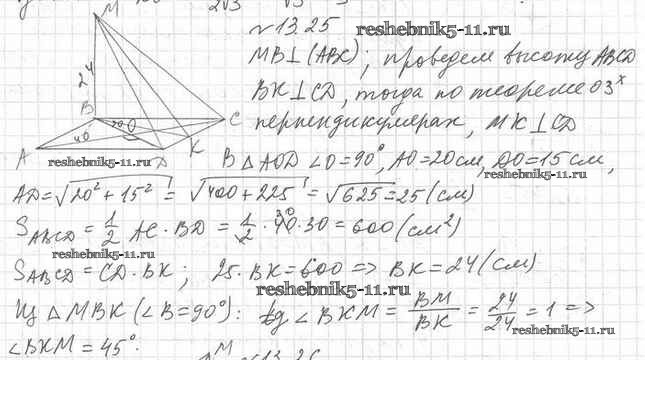 M
2√3 √3 3
N 13.25
reshebnik5-11.ru
MB⊥(ABK); проведем высоту ABCD
BK⊥CD, тогда по теореме о 3х
перпендикулярах, MK⊥CD
24
B
30
O
C
40
K
A
D
reshebnik5-11.ru
В △AOD ∠O=90°, AO=20см, DO=15см,
AD=√20²+15² = √400+225 = √625=25(см)
S_ABCD = 1/2 AC·BD = 1/2·40·30=600(см²)
reshebnik5-11.ru
S_ABCD=CD·BK; 25·BK=600 => BK=24(см)
reshebnik5-11.ru
Из △MBK(∠B=90°): tg∠BKM = BM/BK = 24/24 = 1 =>
reshebnik5-11.ru
∠BKM=45°.
M